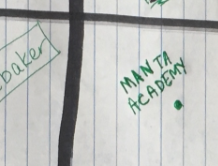 baker
MANTA
ACADEMY